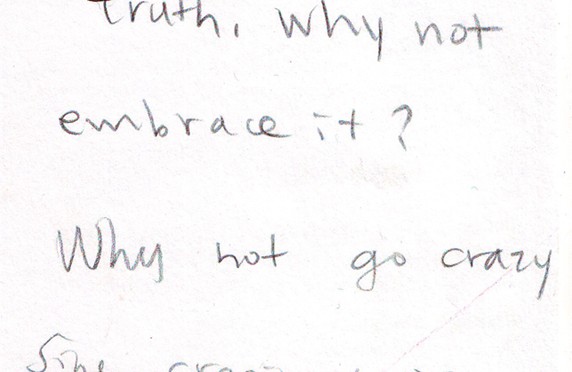 truth, why not
embrace it?
Why not go crazy